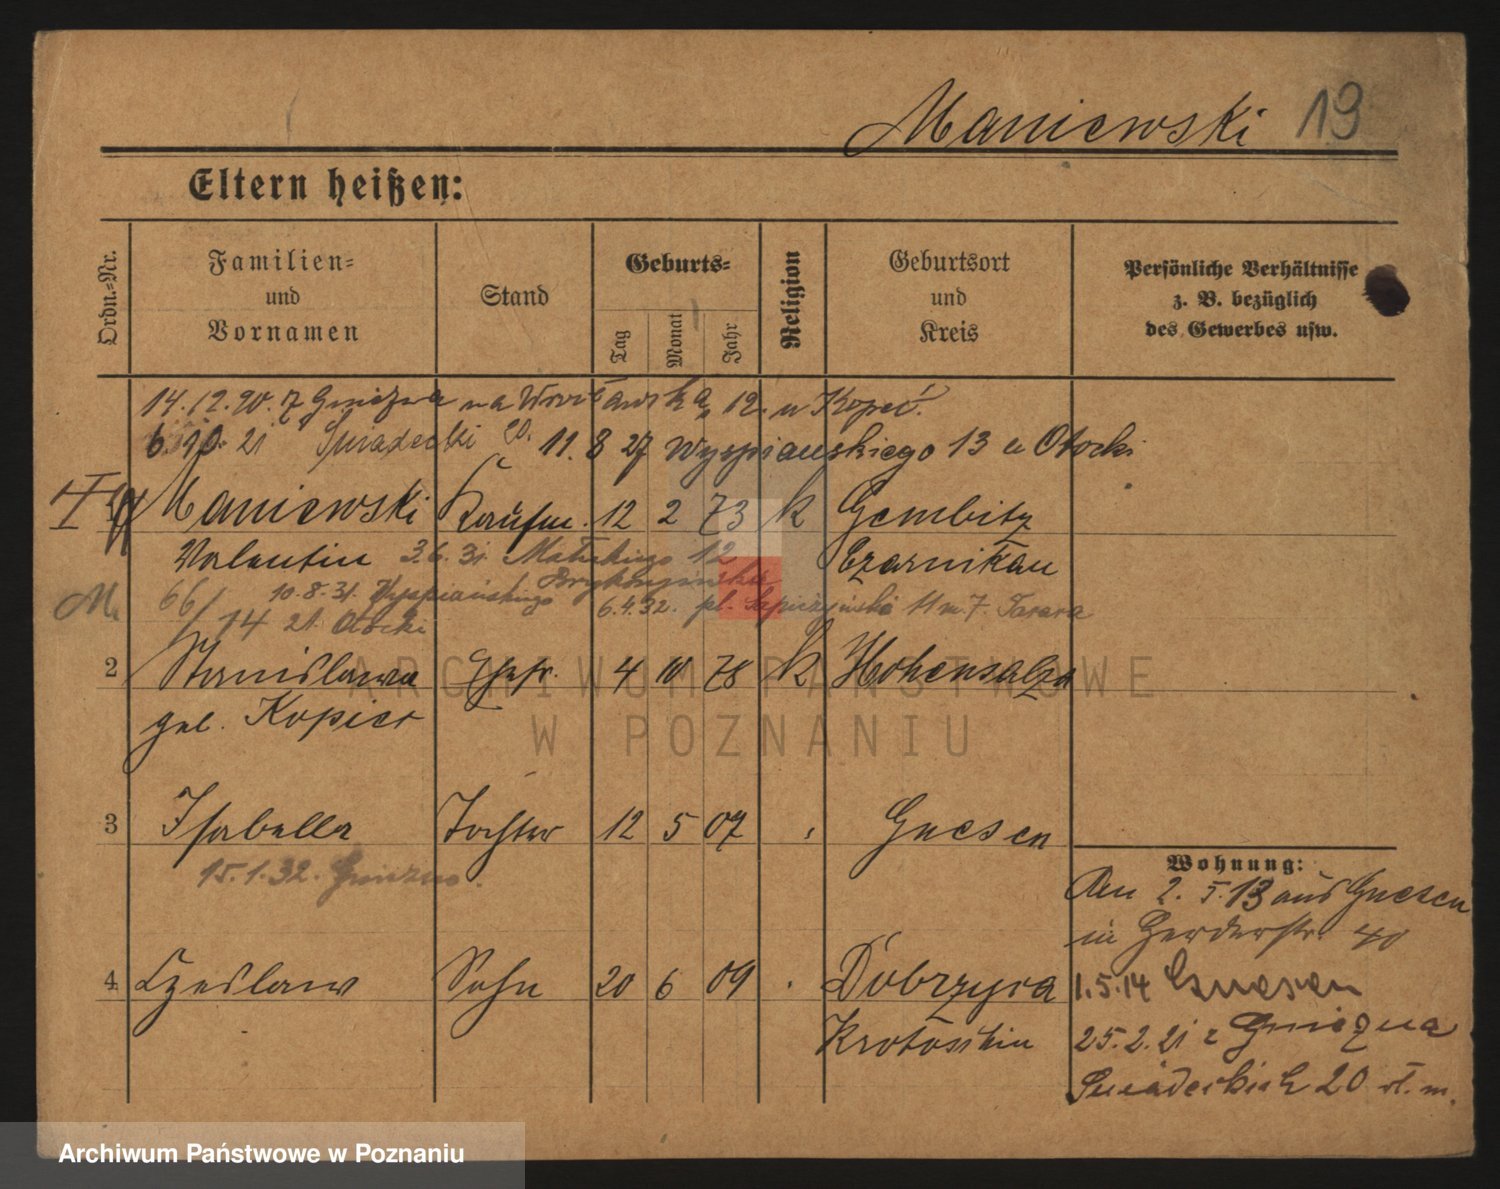 Maniewski 19
Eltern heißen:
Ordn.-Nr.
Familien- und Vornamen
Stand
Geburts-
Tag
Monat
Jahr
Religion
Geburtsort und Kreis
Persönliche Verhältnisse
z. B. bezüglich
des Gewerbes usw.
14.12.20. z Gniezna na 12. u Kopeć.
6.10.21 Śniadeckich 20. 11.8 27 Wyspiańskiego 13 u Otocki
Maniewski Kaufm. 12 2 73 k Gembitz
Valentin 3.6.31 Matejkingo 12 Czarnikau
M. 66/14 10.8.31. Wyspiańskingo 6.4.32. pl. 11 m 7. Tarara
21. Otocki
2 Stanislawa Ehefr. 4 10 78 k Hohensalza
geb. Kopiec
3 Isabella Tochter 12 5 07 Gnesen
15.1.32. Gniezno.
Wohnung:
Den 2. 5. 13 aus Gnesen
in Herderstr. 40
4 Czeslaw Sohn 20 6 09 Dobrzyca
1.5.14 Gnesen
Krotoschin
25.2.21 z Gniezna
Śniadeckich 20
ARCHIWUM PAŃSTWOWE
W POZNANIU
Archiwum Państwowe w Poznaniu